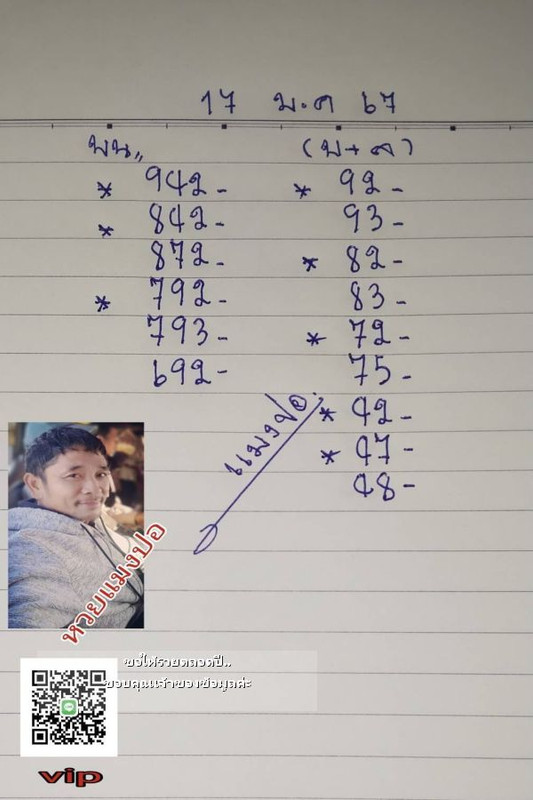 17 ม.ค 67
บน,,
* 942-
* 842-
872-
* 792-
793-
692-
(บ+ล)
* 92-
93-
* 82-
83-
* 72-
75-
* 42-
* 47-
48-
แมงปอ
หวยแมงปอ
ขอให้รวยตลอดปี..
ขอบคุณเจ้าของข้อมูลค่ะ
vip